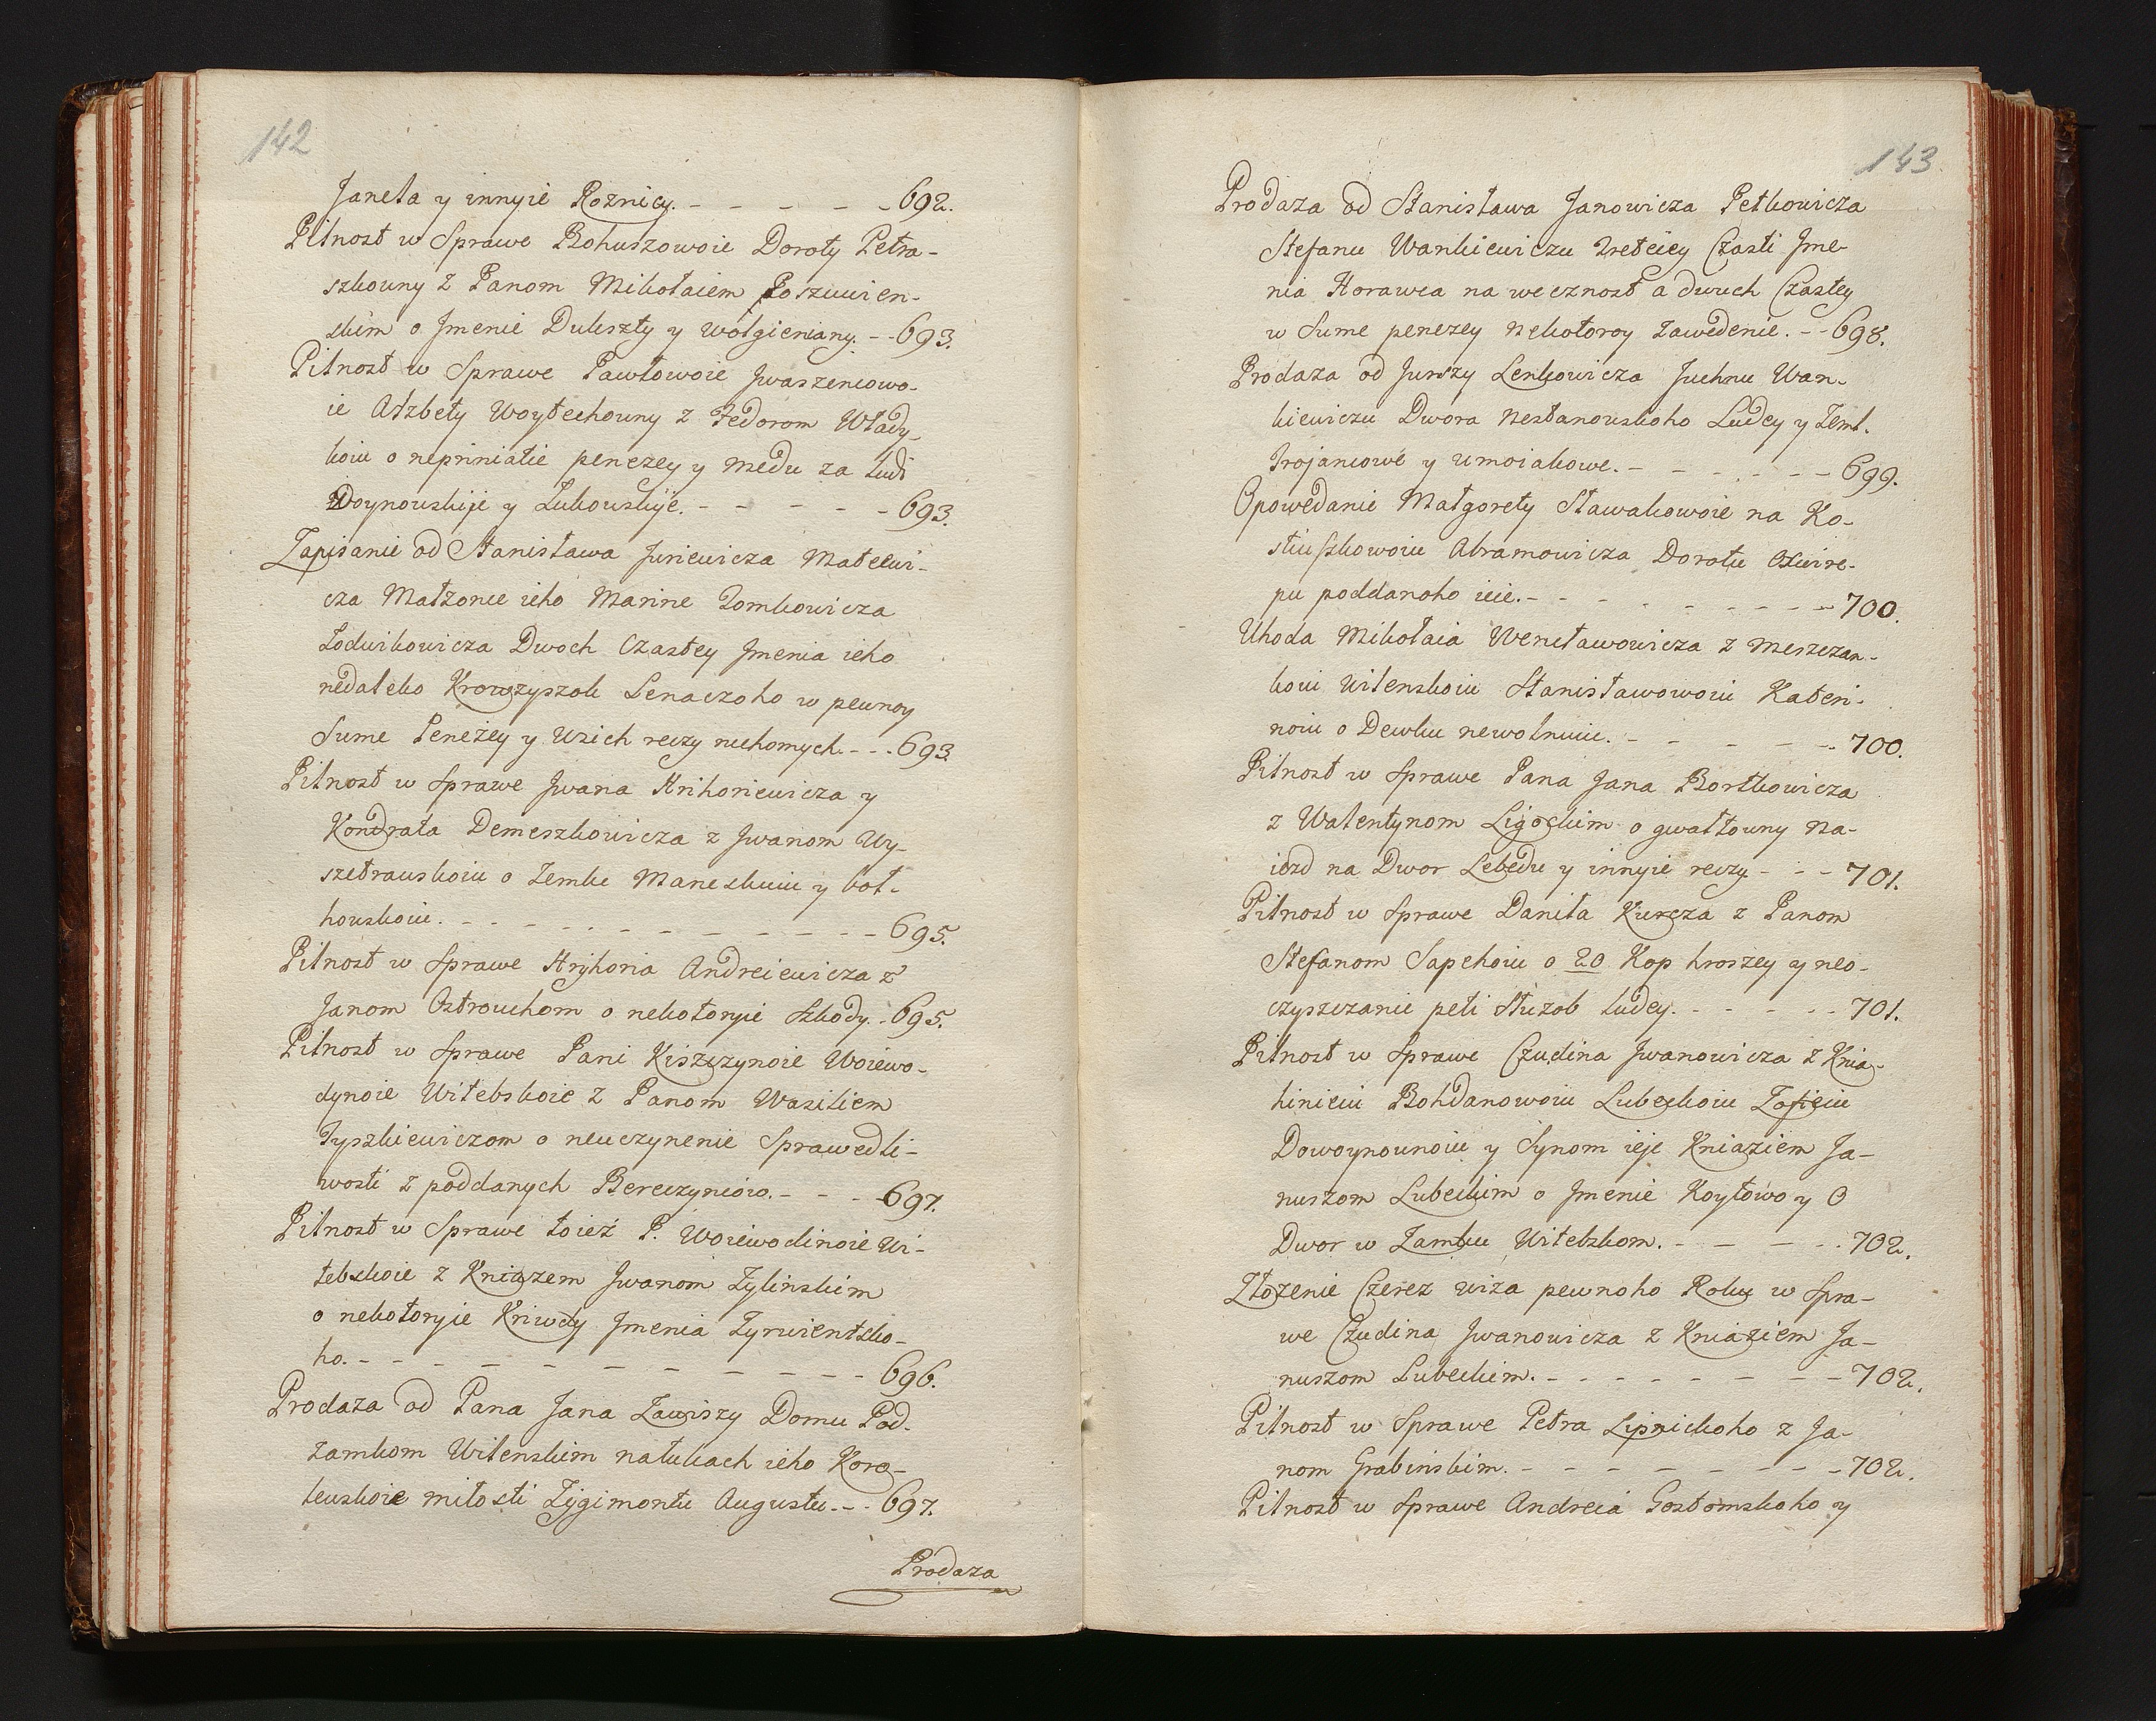 142
Janela y innyie Roznicy. - - - - - 692.
Pilnost w Sprawe Bohuszowoie Doroty Petra-
szkowny z Panom Mikołaiem Poszuwien-
skim o Jmenie Dukszty y Wolgieniany. - - 693.
Pilnost w Sprawe Pawłowoie Jwaszencowo-
ie Alzbety Woytechowny z Fedorom Włady-
koiu o nepriniatie penezey y medu za ludi
Doynowskije y Lukowskije. - - - - - 693.
Zapisanie od Stanisława Juriewicza Matewi-
cza Małzonce ieho Marine Tomkowicza
Lodwikowicza Dwoch Czastey Jmenia ieho
nedaleko Krowzyszok Lenaczoho w pewnoy
Sume Peneżey y Wsich reczy ruchomych. - - - 693.
Pilnost w Sprawe Jwana Hrihoriewicza y
Kondrata Demeszkowicza z Jwanom Wy-
szetrawskoiu o Zemlu Maneskuiu y boł-
howskoiu. - - - - - - - - - - - 695.
Pilnost w Sprawe Hryhoria Andreiewicza z
Janom Ostrouchom o nekotoryie szkody. - 695.
Pilnost w Sprawe Pani Kiszczynoie Woiewo-
dynoie Witebskoie z Panom Wasiliem
Tyszkiewiczom o neuczynenie Sprawedli-
wosti z poddanych Bereczyncow. - - - - 697.
Pilnost w Sprawe toieź P. Woiewodinoie Wi-
tebskoie z Kniazem Jwanom Zylinskim
o nekotoryie Kriwdy Jmenia Zyrwientsko-
ho. - - - - - - - - - - 696.
Prodaza od Pana Jana Zawiszy Domu Pod-
zamkom Wilenskim na łukach ieho Koro-
lewskoie miłosti Zygimontu Augustu. - - - 697.
Prodaza
143
Prodaza od Stanisława Janowicza Petkowicza
Stefanu Wankiewiczu Tretciey Czasti Jme-
nia Horawca na wecznost a dwuch Czastey
w Sume penezey Nekotoroy zawedenie. - - 698.
Prodaza od Jurszy Lenkowicza Juchnu Wan-
kiewiczu Dwora Nestanowskoho Ludey y Zeml.
Trojancowe y Umoiakowe. - - - - - - 699.
Opowedanie Małgorety Sławakowoie na Ko-
stiuszkowoiu Abramowicza Dorotu Oswire-
pu poddanoho ieie. - - - - - - - - - 700.
Uhoda Mikołaia Wencławowicza z meszczan-
koiu Wilenskoiu Stanisławowoiu Kateri-
noiu o Dewku newolnuiu. - - - - - - 700.
Pilnost w Sprawe Pana Jana Bortkowicza
z Walentynom Ligockim o gwałtowny na-
iezd na Dwor Lebedu y innyie reczy. - - - 701.
Pilnost w Sprawe Daniła Kurcza z Panom
Stefanom Sapehoiu o 20 Kop hroszey y neo-
czyszczanie peti Służob ludey. - - - - - 701.
Pilnost w Sprawe Czudina Jwanowicza z Knia-
hinieiu Bohdanowoiu Lubeckoiu Zofieiu
Dowoynownoiu y Synom ieje Kniaziem Ja-
nuszom Lubeckim o Jmenie Koytowo y O
Dwor w Zamku Witebskom. - - - - - 702.
Złozenie Czerez wiza pewnoho Roku w Spra-
we Czudina Jwanowicza z Kniaziem Ja-
nuszom Lubeckim. - - - - - - - - 702.
Pilnost w Sprawe Petra Lipnickoho z Ja-
nom Grabinskim. - - - - - - - - 702.
Pilnost w Sprawe Andreia Gostomskoho y